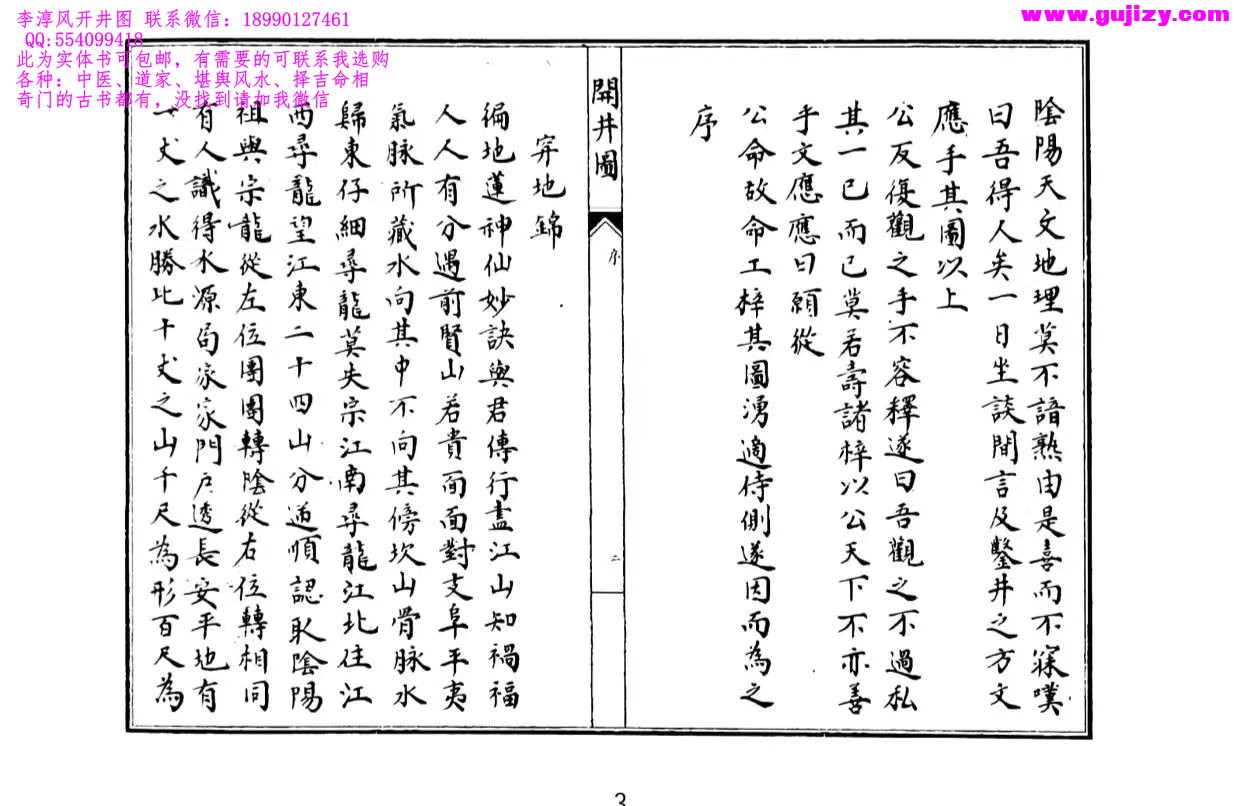 李淳风开井图 联系微信：18990127461
QQ:554099418
此为实体书可包邮，有需要的可联系我选购
各种：中医、道家、堪舆风水、择吉命相
奇门的古书都有，没找到请加我微信
www.gujizy.com
陰陽天文地理莫不諳熟由是喜而不寐嘆
曰吾得人矣一日坐談間言及鑿井之方文
應手其圖以上
公反復觀之手不容釋遂曰吾觀之不過私
其一已而已莫若壽諸梓以公天下不亦善
乎文應應曰願從
公命故命工梓其圖湧適侍側遂因而為之
序
開井圖
序
二
穿地錦
徧地蓮神仙妙訣與君傳行盡江山知禍福
人人有分遇前賢山若貴面面對支阜平夷
氣脉所藏水向其中不向其傍坎山骨脉水
歸東仔細尋龍莫失宗江南尋龍江北住江
西尋龍望江東二十四山分逆順認取陰陽
祖與宗龍從左位團團轉陰從右位轉相同
有人識得水源訇家家門戶透長安平地有
一丈之水勝比十丈之山千尺為形百尺為
3